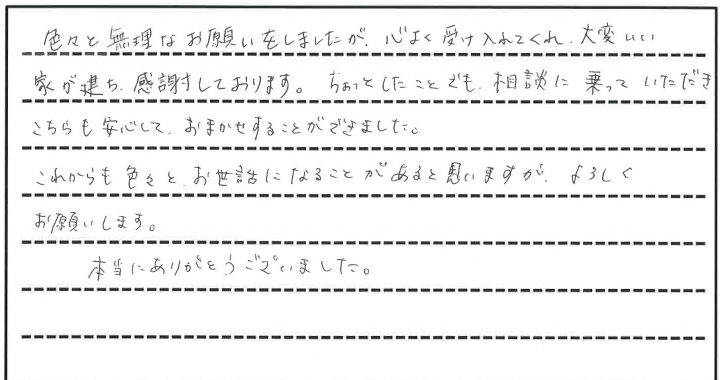 色々と無理なお願いをしましたが、心よく受け入れてくれ、大変いい
家が建ち、感謝しております。ちょっとしたことでも、相談に乗っていただき
こちらも安心して、おまかせすることができました。
これからも色々と、お世話になることがあると思いますが、よろしく
お願いします。
本当にありがとうございました。